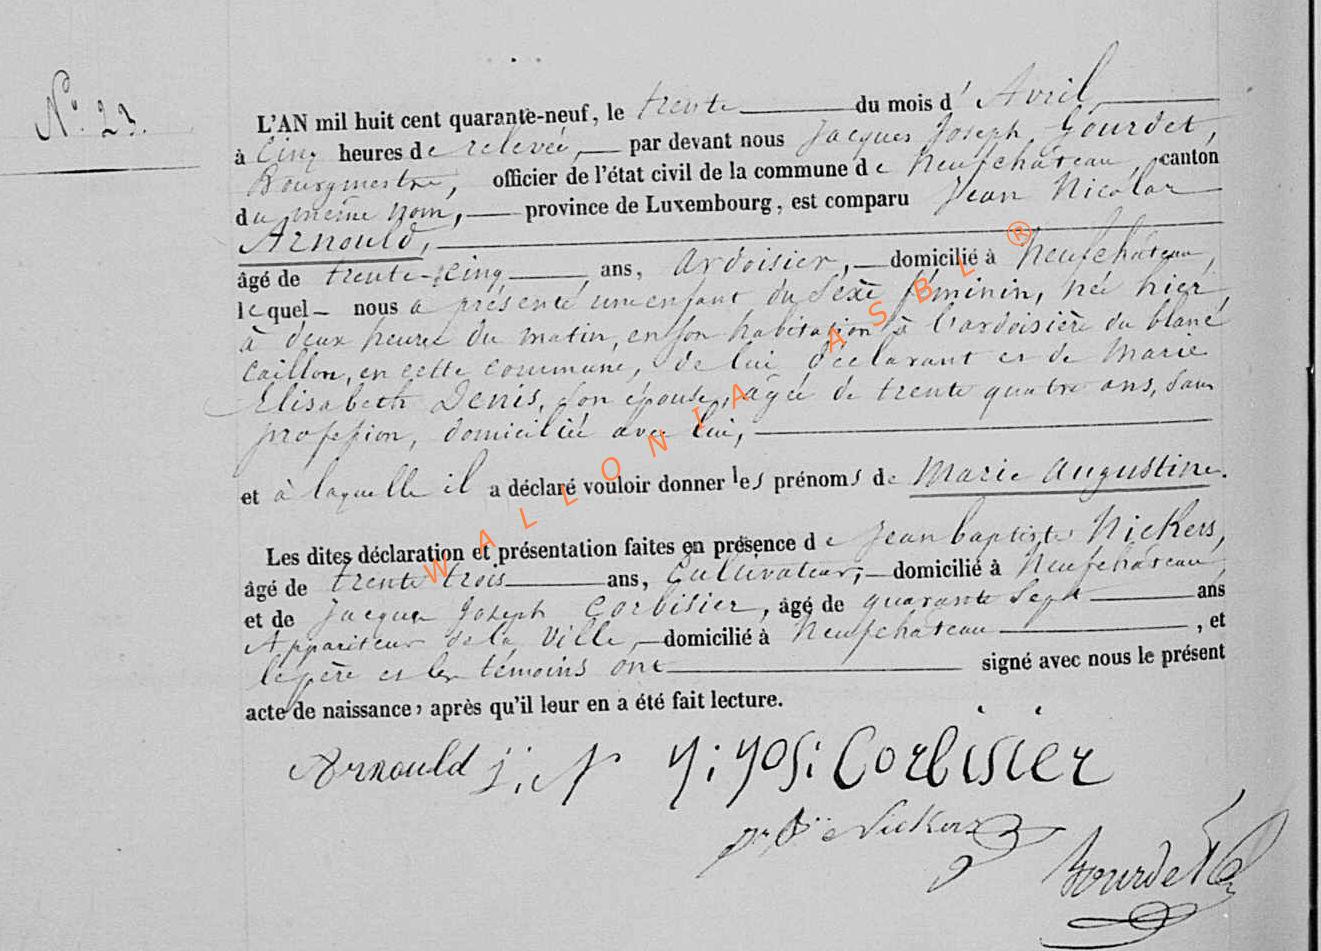 N.° 23.
L'AN mil huit cent quarante-neuf, le trente du mois d'Avril,
à Cinq heures de relevée, par devant nous Jacques Joseph Gourdet,
Bourgmestre, officier de l'état civil de la commune de Neufchâteau, canton
du même nom, province de Luxembourg, est comparu Jean Nicolas
Arnould,
âgé de trente-cinq ans, Ardoisier, domicilié à Neufchâteau,
lequel nous a présenté un enfant du Sexe féminin, née hier
à deux heures du matin, en son habitation à l'ardoisière du blanc
Caillon, en cette commune, de lui déclarant et de Marie
Elisabeth Denis, Son épouse, âgée de trente quatre ans, Sans
profession, domiciliée avec lui,
et à laquelle il a déclaré vouloir donner les prénoms de Marie Augustine.
Les dites déclaration et présentation faites en présence de Jean baptiste Nickers,
âgé de trente trois ans, Cultivateur, domicilié à Neufchâteau,
et de Jacques Joseph Corbisier, âgé de quarante Sept ans
Appariteur de la Ville, domicilié à Neufchâteau, et
le père et les témoins ont signé avec nous le présent
acte de naissance, après qu'il leur en a été fait lecture.
Arnould j: N J: Jos: Corbisier
Nickers
Gourdet
WALLONIA ASBL ®